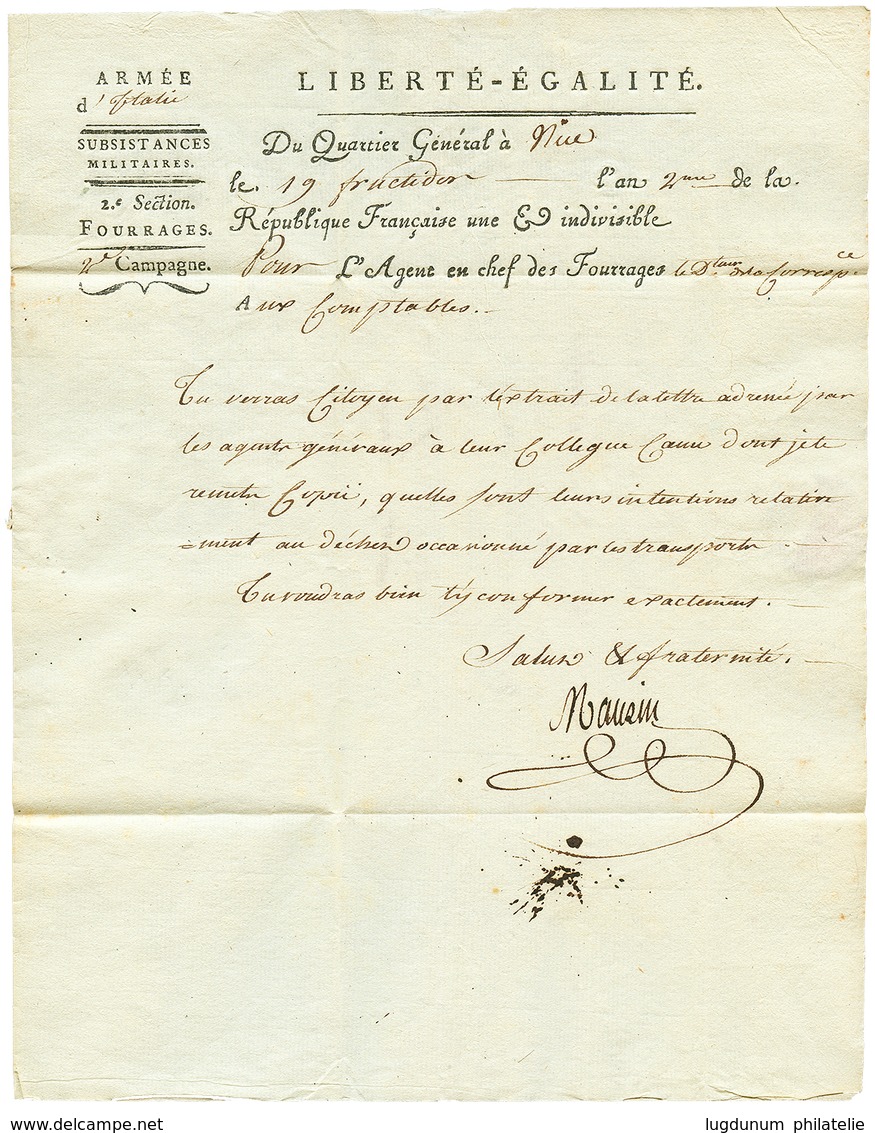 ARMÉE
d'Italie
SUBSISTANCES
MILITAIRES.
2.e Section.
FOURRAGES.
2e Campagne.
LIBERTÉ-ÉGALITÉ.
Du Quartier Général à Nice
le 19 fructidor l'an 2me de la
République Française une & indivisible
Pour L'Agent en chef des Fourrages le Dteur de la Correspce
Aux Comptables.
Tu verras Citoyen par l'extrait de la lettre adressée par
les agents généraux à leur Collegue dont je te
remets Copie, quelles sont leurs intentions relative
=ment au déchet occasionné par les transports
Tu voudras bien t'y conformer exactement.
Salut & fraternité.
www.delcampe.net
lugdunum philatelie